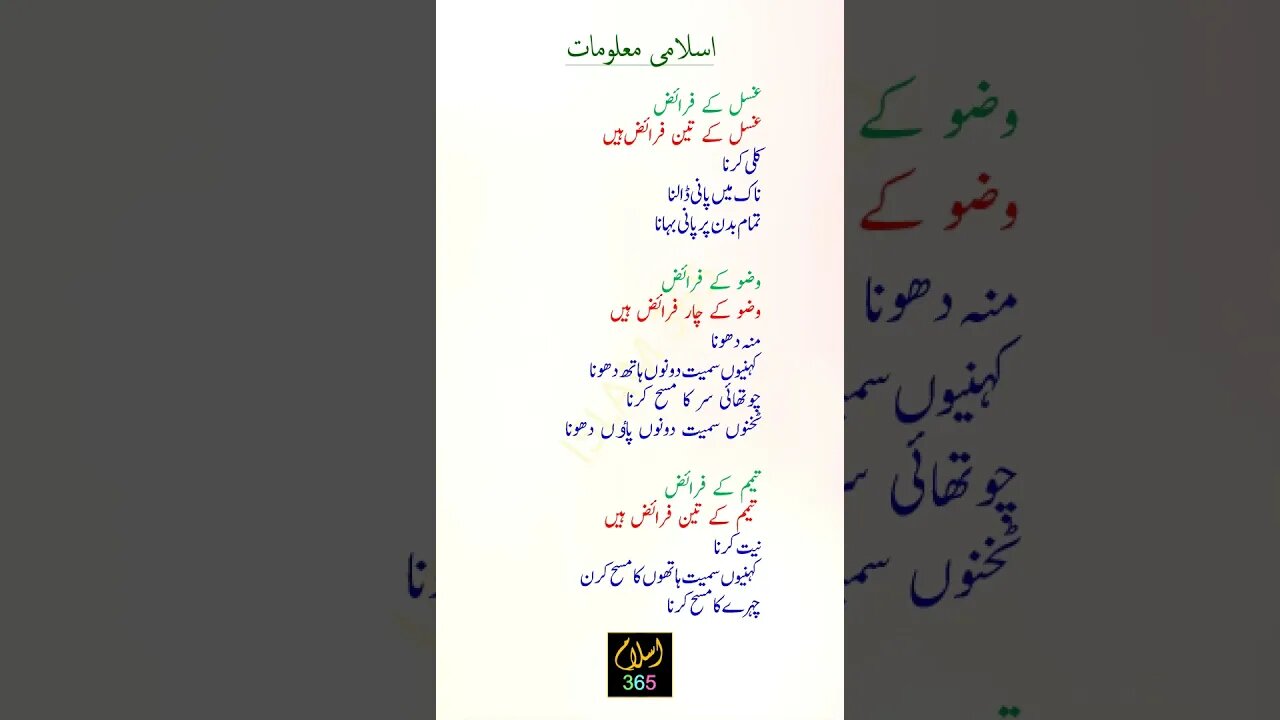 اسلامی معلومات
غسل کے فرائض
غسل کے تین فرائض ہیں
کلی کرنا
ناک میں پانی ڈالنا
تمام بدن پر پانی بہانا
وضو کے فرائض
وضو کے چار فرائض ہیں
منہ دھونا
کہنیوں سمیت دونوں ہاتھ دھونا
چوتھائی سر کا مسح کرنا
ٹخنوں سمیت دونوں پاؤں دھونا
تیمم کے فرائض
تیمم کے تین فرائض ہیں
نیت کرنا
کہنیوں سمیت ہاتھوں کا مسح کرن
چہرے کا مسح کرنا
اسلام
365
وضو کے
وضو کے
منہ دھونا
کہنیوں
چوتھائی
ٹخنوں